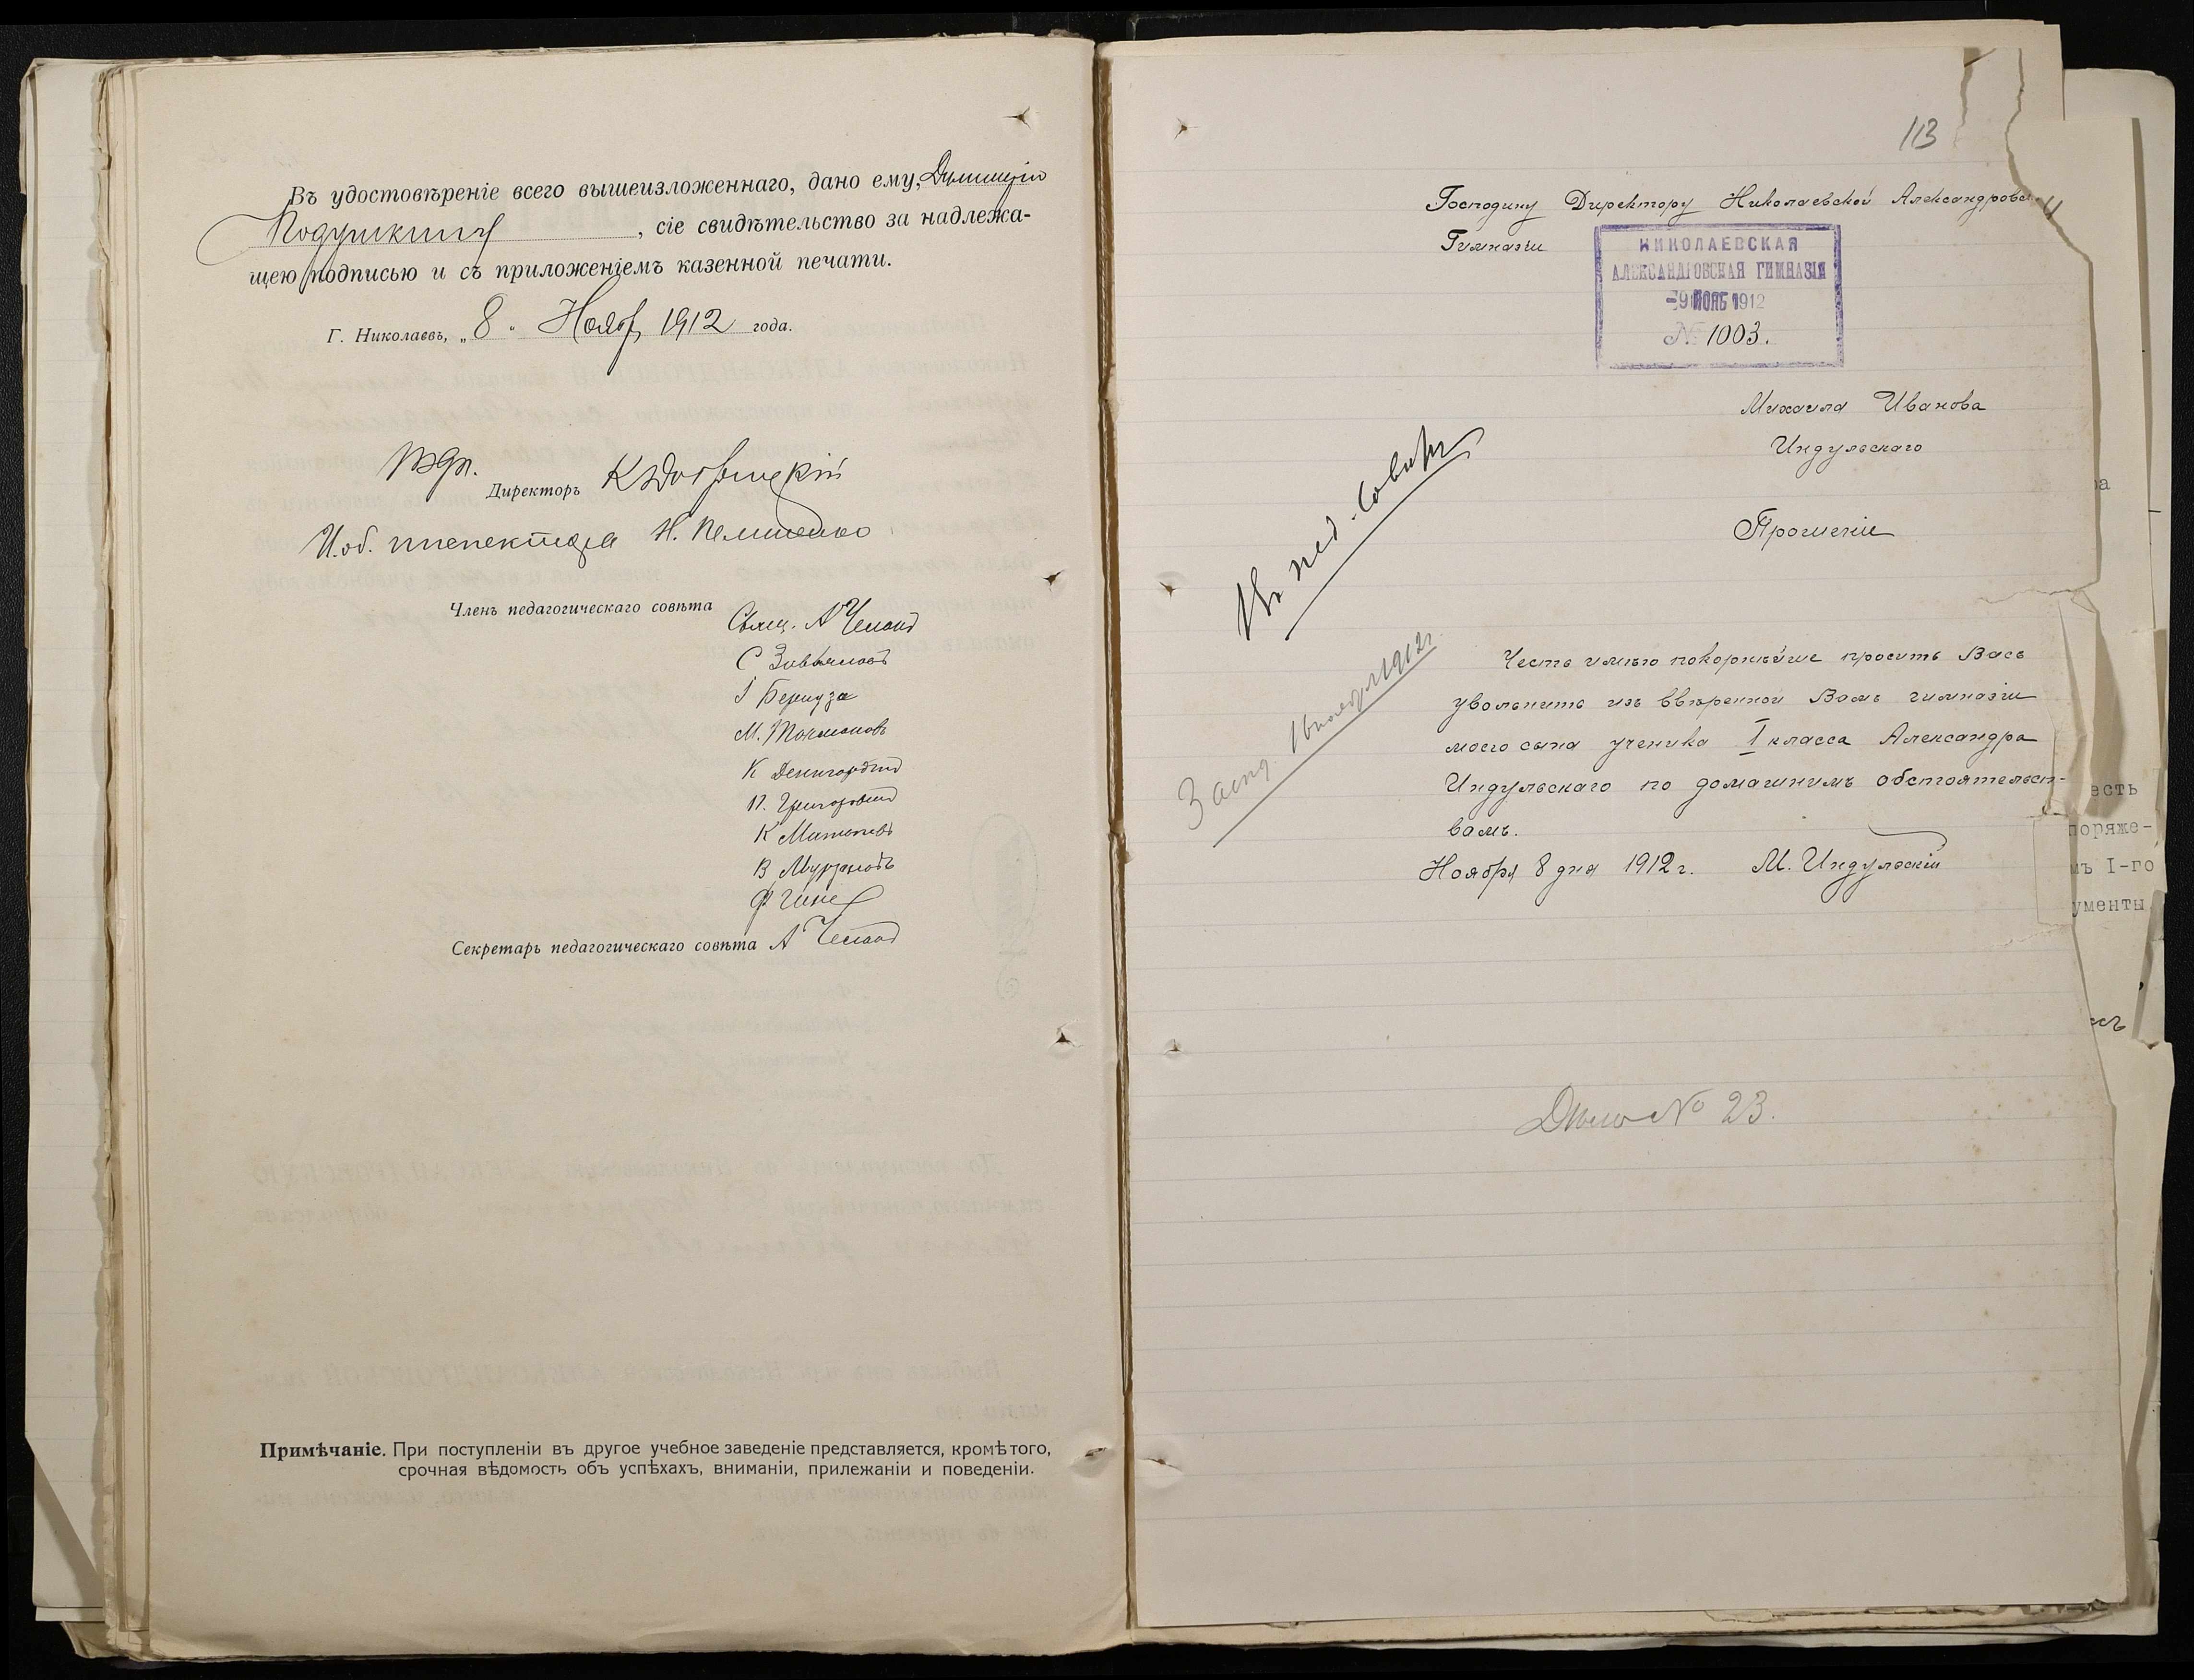 Въ удостовѣреніе всего вышеизложеннаго, дано ему, Димитрію
Подушкину, сіе свидѣтельство за надлежа-
щею подписью и съ приложеніемъ казенной печати.
Г. Николаевъ, „ 8 " Ноябр 1912 года.
Директоръ
И. об. инспектора Н.
Членъ педагогическаго совѣта
Свящ. А
С
І
М.
К
П.
К
В
Ф
Секретарь педагогическаго совѣта А
Примѣчаніе. При поступленіи въ другое учебное заведеніе представляется, кромѣ того,
срочная вѣдомость объ успѣхахъ, вниманіи, прилежаніи и поведеніи.
113
Господину Директору Николаевской Александровской
Гимназіи
НИКОЛАЕВСКАЯ
АЛЕКСАНДРОВСКАЯ ГИМНАЗІЯ
-9 НОЯБ 1912
№ 1003.
Михаила Иванова
Индульскаго
Прошеніе
Въ пед. совѣтъ
Честь имѣю покорнѣйше просить Васъ
уволить изъ ввѣренной Вамъ гимназіи
моего сына ученика I класса Александра
Индульскаго по домашнимъ обстоятельст-
вамъ.
Ноября 8 дня 1912 г. М. Индульскій
Засѣд. 16 ноября 1912 г.
Дѣло № 23.
ра
есть
поряже-
мъ I-го
ументы